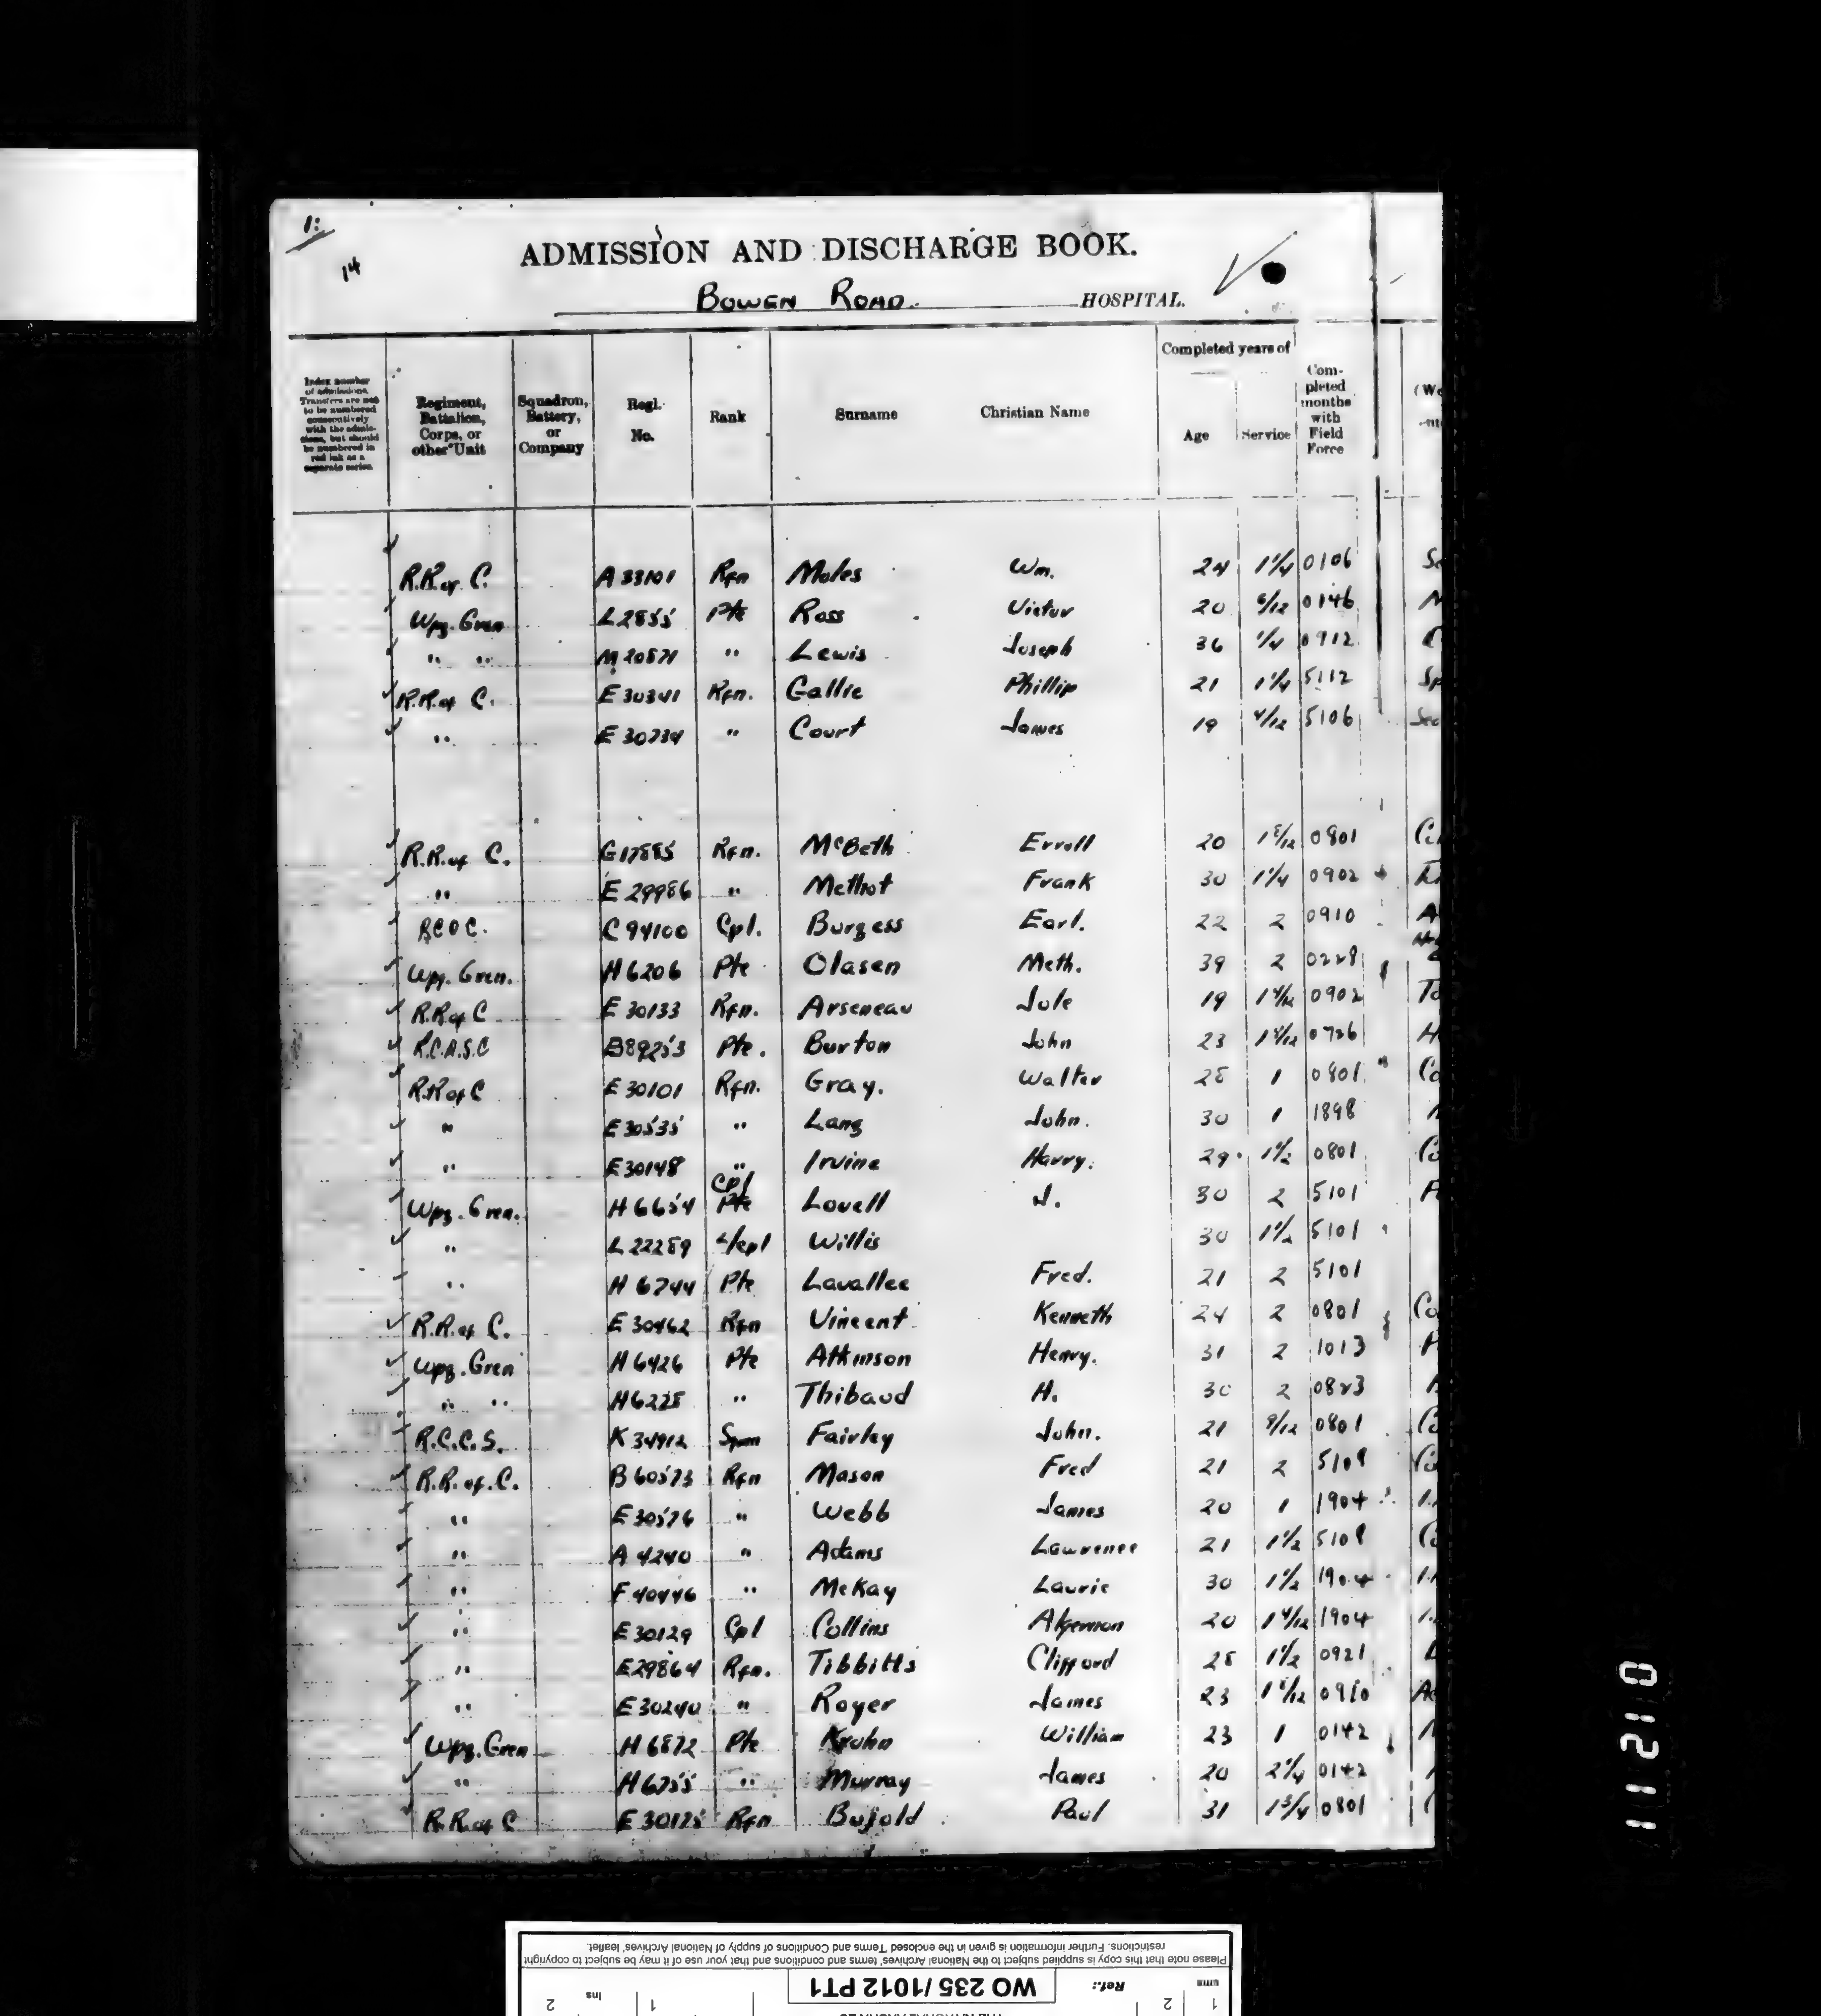 1:
14
ADMISSION AND DISCHARGE BOOK.
BOWEN ROAD. HOSPITAL.
Completed years of
Index number of admissions. Transfers are not to be numbered consecutively with the admissions, but should be numbered in red ink as a separate series.
Regiment, Battalion, Corps, or other Unit
Squadron, Battery, or Company
Regl. No.
Rank
Surname
Christian Name
Age
Service
Completed months with Field Force
R.R. of C. A 33101 Rfn Moles Wm. 24 1 1/4 0106
Wpg. Gren L2855 Pte Ross Victor 20 6/12 0146
" " M 20871 " Lewis Joseph 36 1/4 0912
R.R. of C. E 30341 Rfn. Gallie Phillip 21 1 1/4 5112 Sp
" E 30734 " Court James 19 4/12 5106
R.R. of C. G17885 Rfn. McBeth Erroll 20 1 8/12 0801
" E 29986 " Methot Frank 30 1 1/4 0902
C 94100 Cpl. Burgess Earl. 22 2 0910
Wpg. Gren. H 6206 Pte Olasen Meth. 39 2 0229
R.R of C E 30133 Rfn. Arseneau Jule 19 0902 To
R.C.A.S.C B89253 Pte. Burton John 23 0726 H
R.R of C E 30101 Rfn. Gray. Walter 28 1 0801 Co
" E 30535 " Lang John. 30 1 1898
" E30148 " Irvine Harry. 29 1 1/2 0801 Co
Cpl
Wpg. Gren. H 6654 Pte Lovell J. 30 2 5101
" L 22289 L/cpl Willis 30 1 1/2 5101
" H 6744 Pte Lavallee Fred. 21 2 5101
R.R. of C. E 30462 Rfn Vincent Kenneth 24 2 0801 Co
Wpg. Gren H 6426 Pte Atkinson Henry. 31 2 1013
" " H6228 " Thibaud H. 30 2 0823
R.C.C.S. K 34912 Fairley John. 21 9/12 0801 Co
R.R. of. C. B 60573 Rfn Mason Fred 21 2 5109 Co
" E 30576 " Webb James 20 1 1904
" A 4240 " Adams Lawrence 21 1 1/2 5108
" F 40446 " McKay Laurie 30 1 1/2 1904
" E 30129 Cpl Collins Algernon 20 1 4/12 1904
" E29864 Rfn. Tibbitts Clifford 28 1 1/2 0921
" E 30240 " Royer James 23 1 8/12 0910
Wpg. Gren H 6872 Pte Krohn William 23 1 0142
" H6755 " Murray James 20 2 1/4 0142
R.R. of C E 30175 Rfn Bujold Paul 31 1 3/4 0801
011210
Please note that this copy is supplied subject to the National Archives' terms and conditions and that your use of it may be subject to copyright
restrictions. Further information is given in the enclosed 'Terms and Conditions of supply of National Archives' leaflet.
Ref.: WO 235/1012 PT1
1 2 1 Ins 2